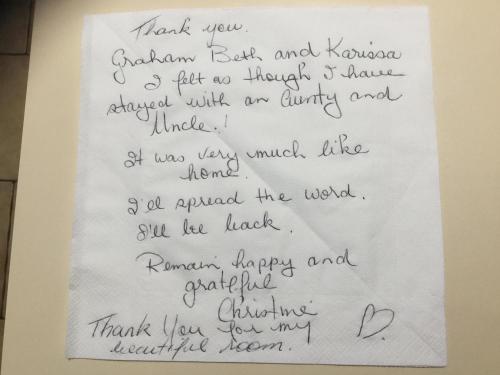 Thank you.
Graham Beth and Karissa
I felt as though I have
stayed with an Aunty and
Uncle.!
It was very much like
home.
I'll spread the word.
I'll be back.
Remain happy and
grateful
Christine
Thank You for my
beautiful room.
B.